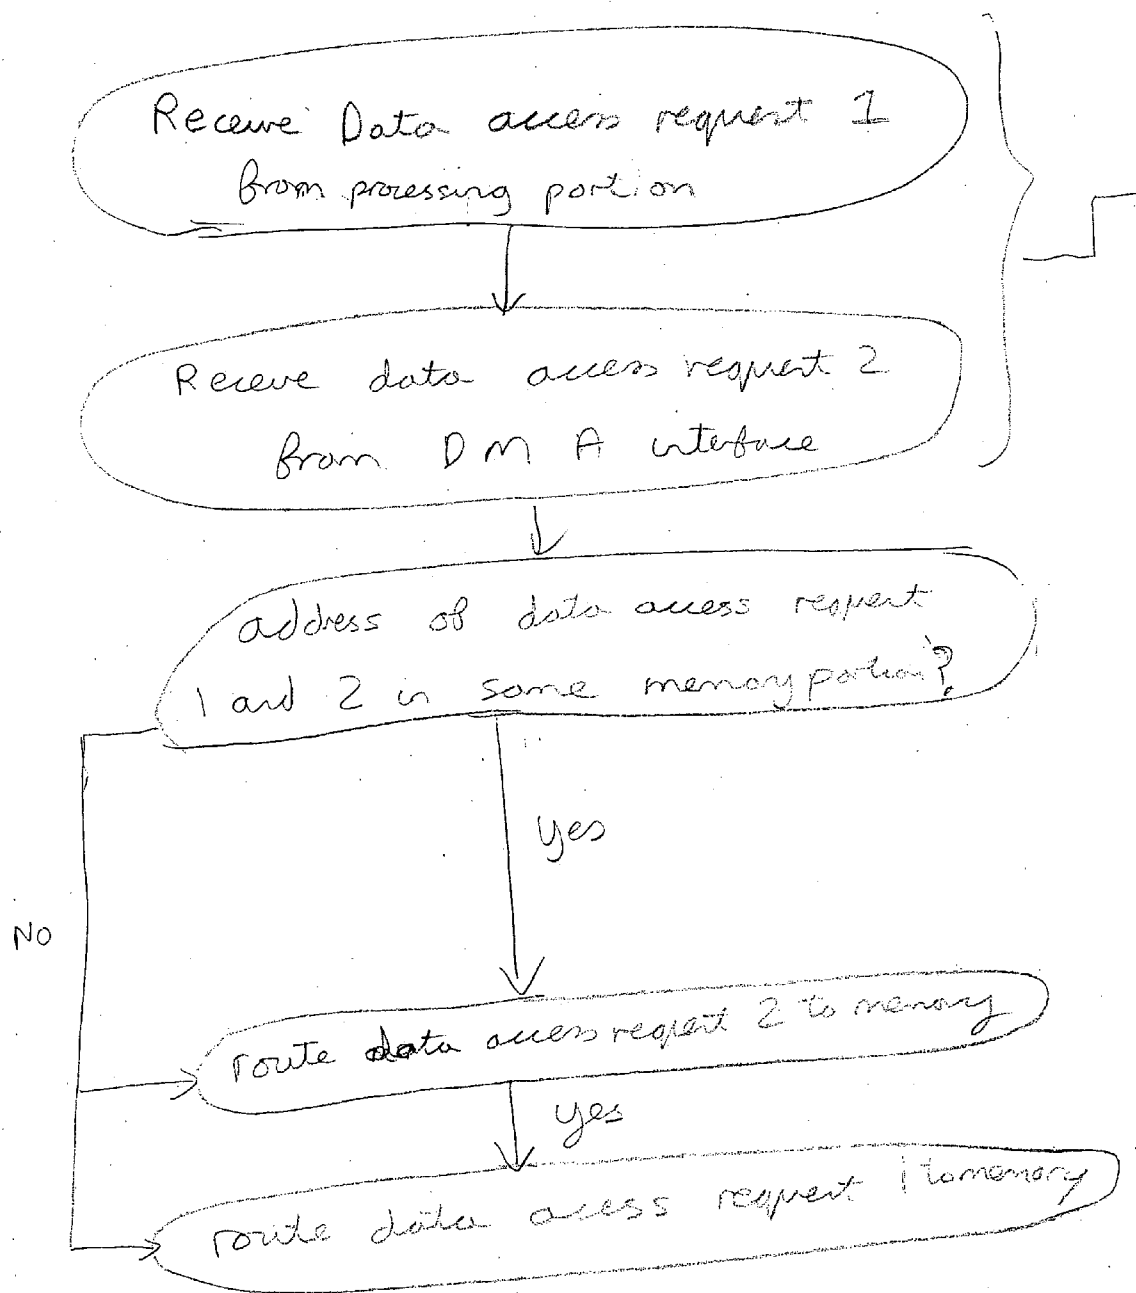 Receive Data access request 1
from processing portion
Receve data access request 2
from DMA interface
address of data access request
1 and 2 in same memory portion?
yes
No
route data access request 2 to memory
yes
route data access request 1 to memory